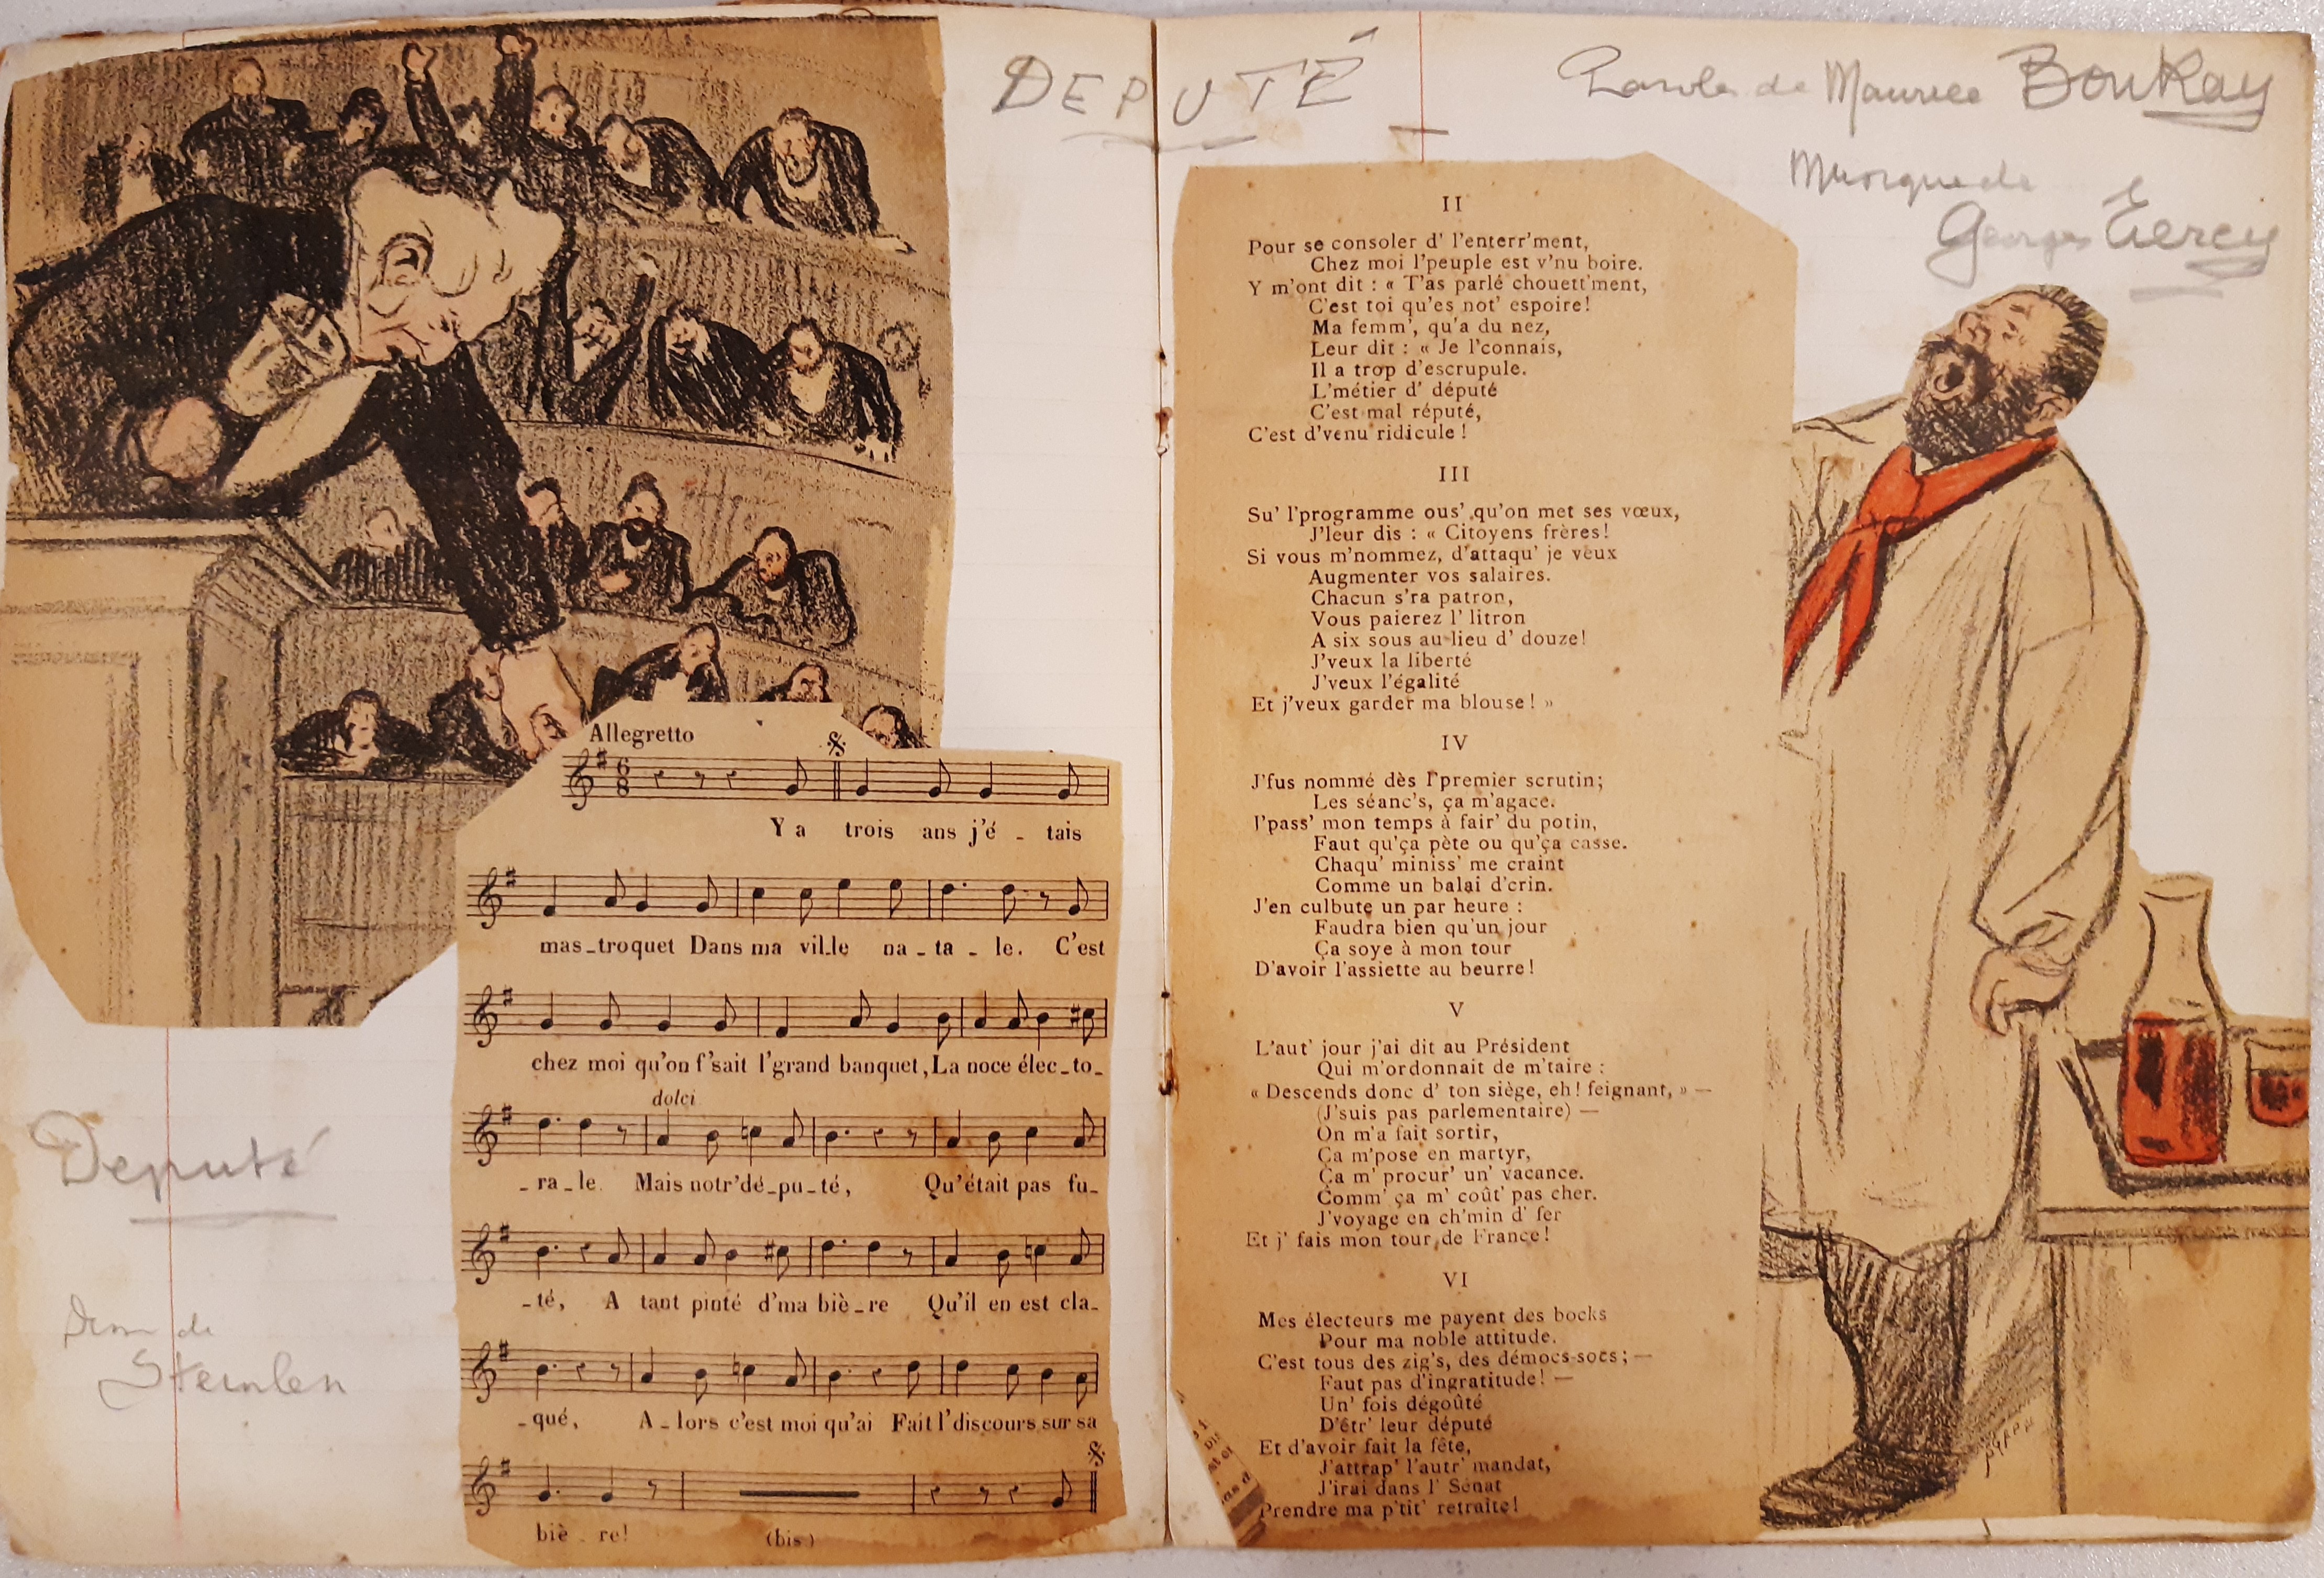 DEPUTÉ
Parole de Maurice BouKay
Musique de
Georges Tiercy
Allegretto
Y a trois ans j'é - tais
mas-troquet Dans ma vil-le na - ta - le. C'est
chez moi qu'on f'sait l'grand banquet, La noce élec-to-
dolci
- ra - le. Mais notr' dé-pu-té, Qu'était pas fu-
-té, A tant pinté d'ma biè-re Qu'il en est cla-
-qué, A-lors c'est moi qu'ai Fait l'discours sur sa
biè - re!
(bis)
Deputé
de
Steinlen
II
Pour se consoler d' l'enterr'ment,
Chez moi l'peuple est v'nu boire.
Y m'ont dit : « T'as parlé chouett'ment,
C'est toi qu'es not' espoire!
Ma femm', qu'a du nez,
Leur dit : « Je l'connais,
Il a trop d'escrupule.
L'métier d' député
C'est mal réputé,
C'est d'venu ridicule !
III
Su' l'programme ous' qu'on met ses vœux,
J'leur dis : « Citoyens frères!
Si vous m'nommez, d'attaqu' je veux
Augmenter vos salaires.
Chacun s'ra patron,
Vous paierez l' litron
A six sous au lieu d' douze!
J'veux la liberté
J'veux l'égalité
Et j'veux garder ma blouse ! »
IV
J'fus nommé dès l'premier scrutin;
Les séanc's, ça m'agace.
J'pass' mon temps à fair' du potin,
Faut qu'ça pète ou qu'ça casse.
Chaqu' miniss' me craint
Comme un balai d'crin.
J'en culbute un par heure :
Faudra bien qu'un jour
Ça soye à mon tour
D'avoir l'assiette au beurre!
V
L'aut' jour j'ai dit au Président
Qui m'ordonnait de m'taire :
« Descends donc d' ton siège, eh! feignant, » —
(J'suis pas parlementaire) —
On m'a fait sortir,
Ça m'pose en martyr,
Ça m' procur' un' vacance.
Comm' ça m' coût' pas cher.
J'voyage en ch'min d' fer
Et j' fais mon tour de France!
VI
Mes électeurs me payent des bocks
Pour ma noble attitude.
C'est tous des zig's, des démocs-socs; —
Faut pas d'ingratitude! —
Un' fois dégoûté
D'êtr' leur député
Et d'avoir fait la fête,
J'attrap' l'autr' mandat,
J'irai dans l' Sénat
Prendre ma p'tit' retraite!